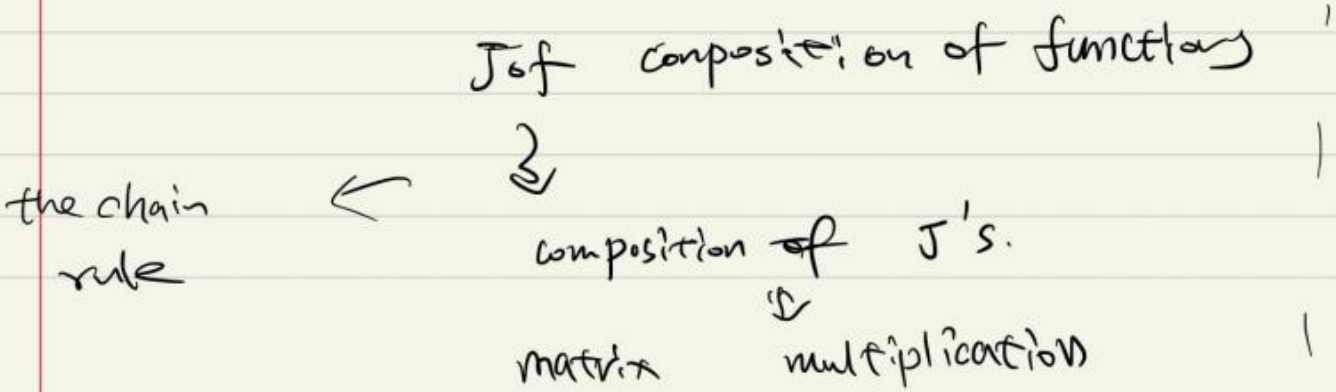 J of composition of functions
the chain
composition of J's.
rule
matrix multiplication